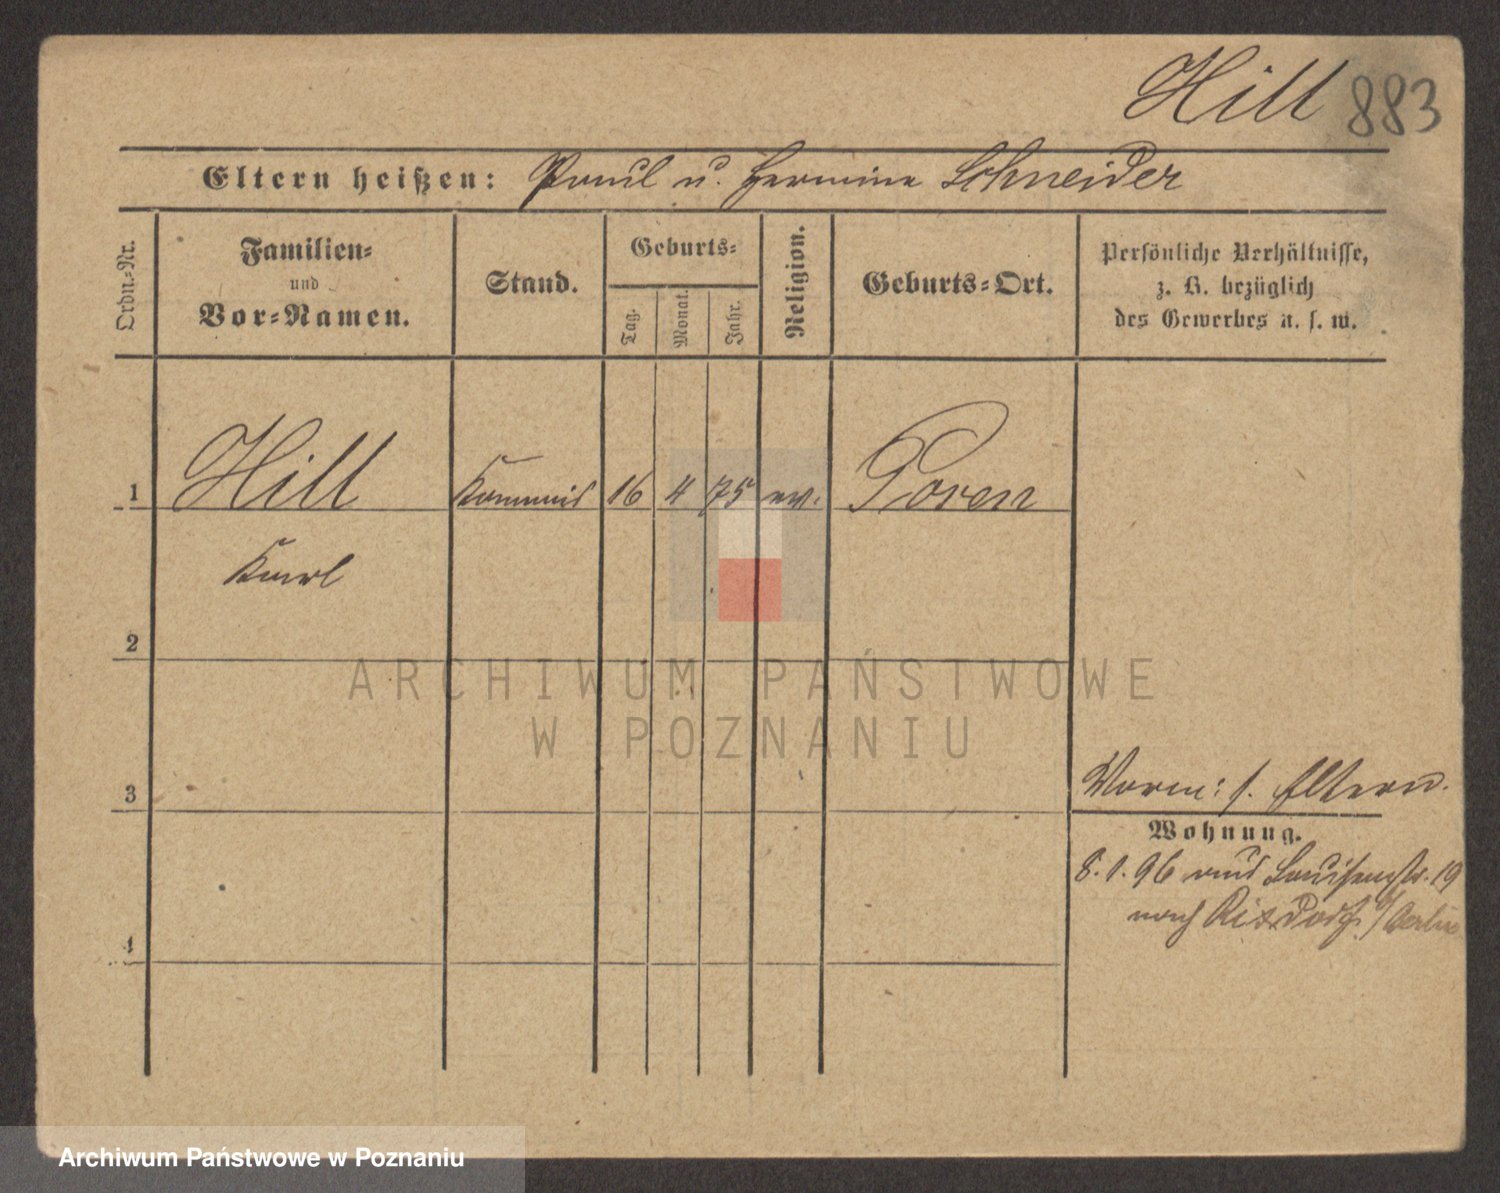 Hill 883
Eltern heißen: Paul u. Hermine Schneider
Ordn.-Nr.
Familien-
und
Vor-Namen.
Stand.
Geburts-
Tag.
Monat.
Jahr.
Religion.
Geburts-Ort.
Persönliche Verhältnisse,
z. B. bezüglich
des Gewerbes u. s. w.
1 Hill Kommis 16 4 75 ev. Posen
Karl
2
ARCHIWUM PAŃSTWOWE
W POZNANIU
3
Vorm: s. Eltern.
Wohnung.
8.1.96 aus Louisenstr. 19
nach Rixdorf b/Berlin
4
Archiwum Państwowe w Poznaniu